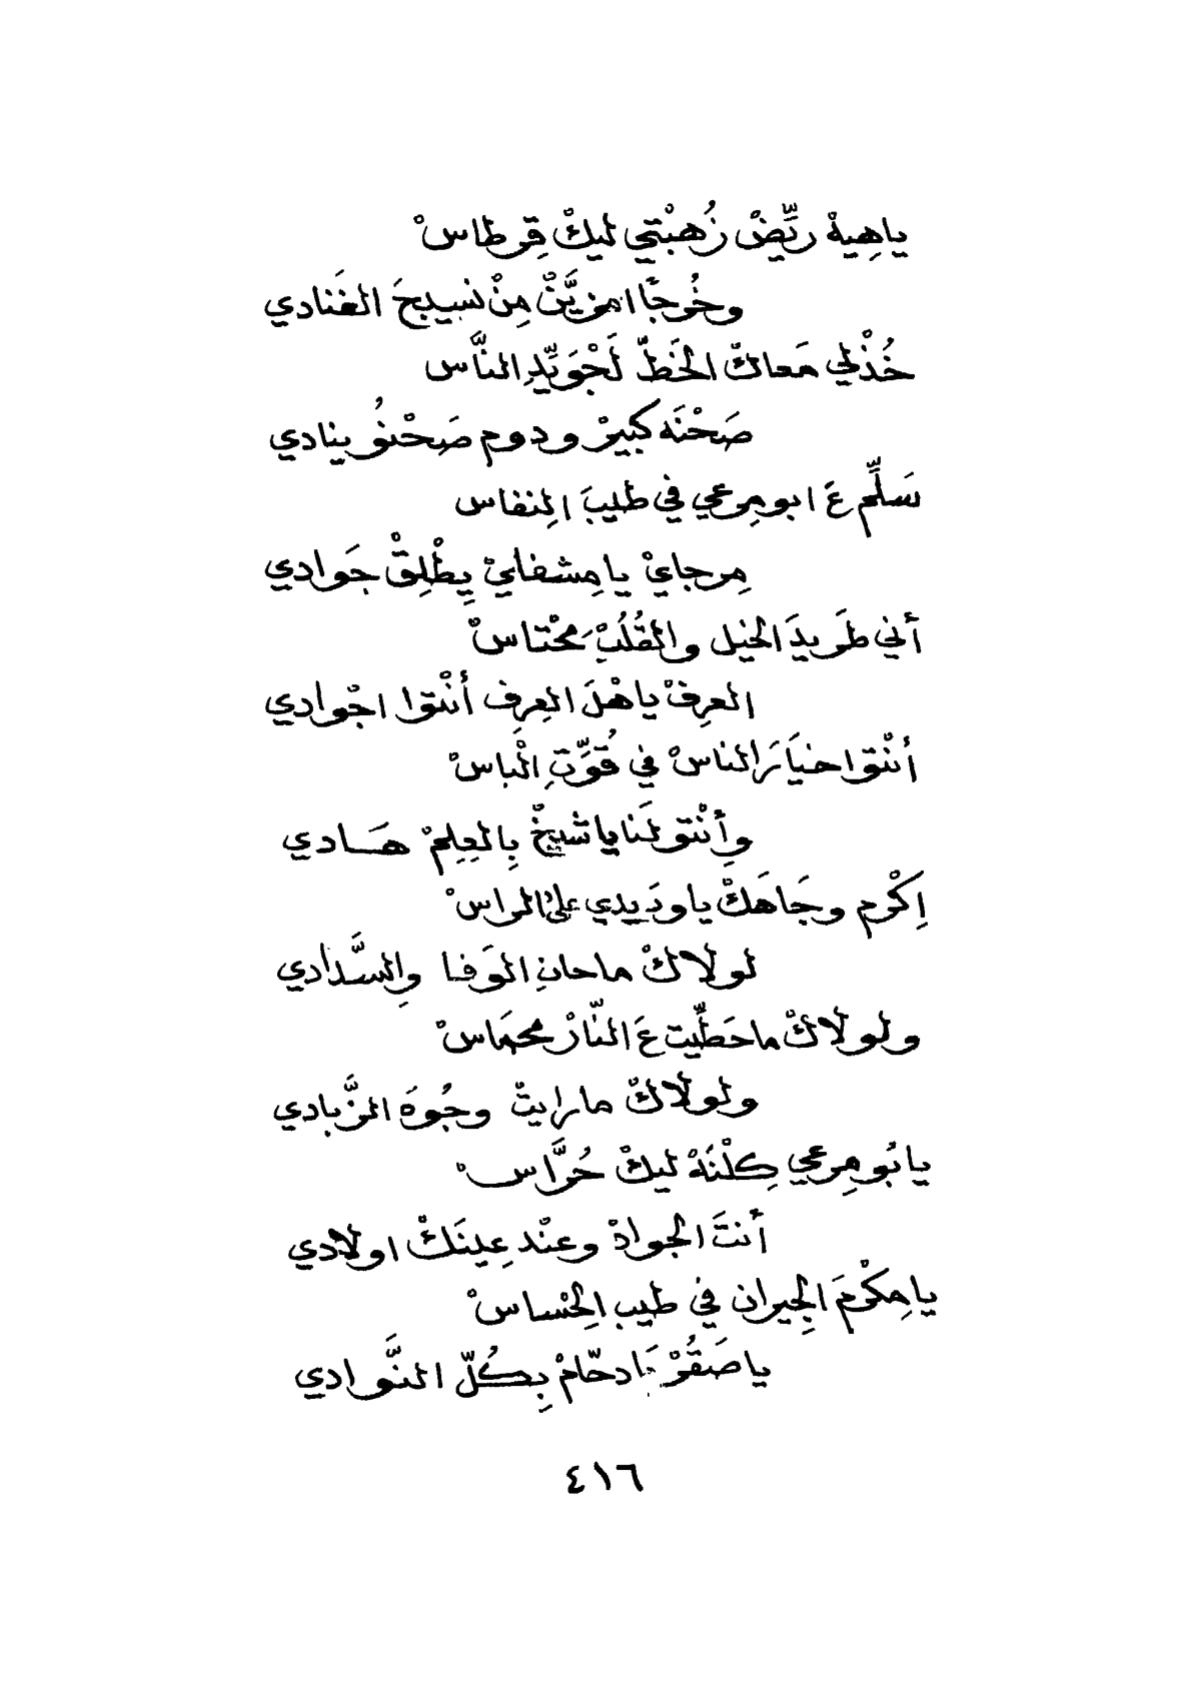 ياهِيهْ ريِّضْ زُهبْتي ليكْ قِرطاسْ
وخُرجًا امزيَّنْ مِنْ نسيجَ الغَنادي
خُذْلي مَعاكْ الخَطّ لَجْوَيِّدِ النَّاس
صَحْنَه كبيرْ ودوم صَحْنُو ينادي
سَلِّم عَ ابو مِرعي في طيبَ الِنفاس
مِرجايْ يا مِشفايْ يِطْلِقْ جَوادي
أني طَريدَ الخيل والقُلُبْ مَحْتاسْ
العرِفْ ياهْلَ العِرِف أنْتوا اجْوادي
أنْتوا خيَارَ الناسْ في قُوِّتِ الْباسْ
وأِنْتو لَنا يا شيخْ بِالعِلِمْ هَـادي
اِكْرم وجَاهَكْ يا ودَيدي علىْ الراسْ
لولاكْ ماحانِ الوَفا والِسَّدادي
ولولاكْ ماحَطِّيت عَ النّارْ محمَاسْ
ولولاكْ ما رايتْ وجُوهَ الزَّبادي
يا بُو مِرعي كِلْنَهْ ليكْ حُرَّاسْ
أنتَ الجوادْ وعنْد عِلينَكْ اولادي
يا مِكْرمَ الِجيران في طيب الِحْساسْ
يا صَقُرْ يَا دحّامْ بِكُلّ النَّوادي
٤١٦